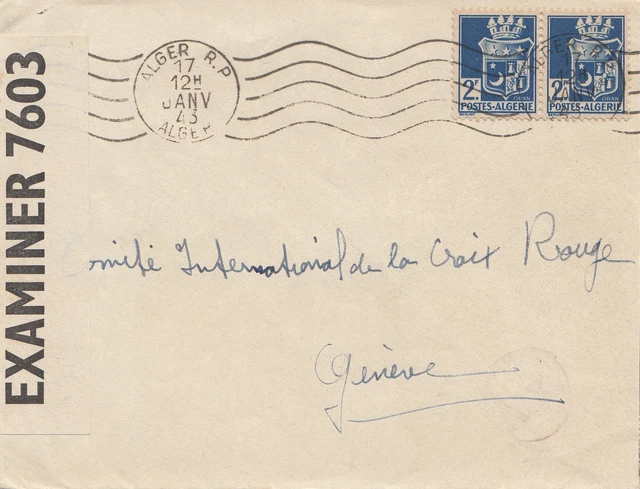 EXAMINER 7603
ALGER R.P
17
12H
JANV
43
ALGER
2F ORAN
POSTES-ALGERIE
2F ORAN
POSTES-ALGERIE
omité International de la Croix Rouge
Génève